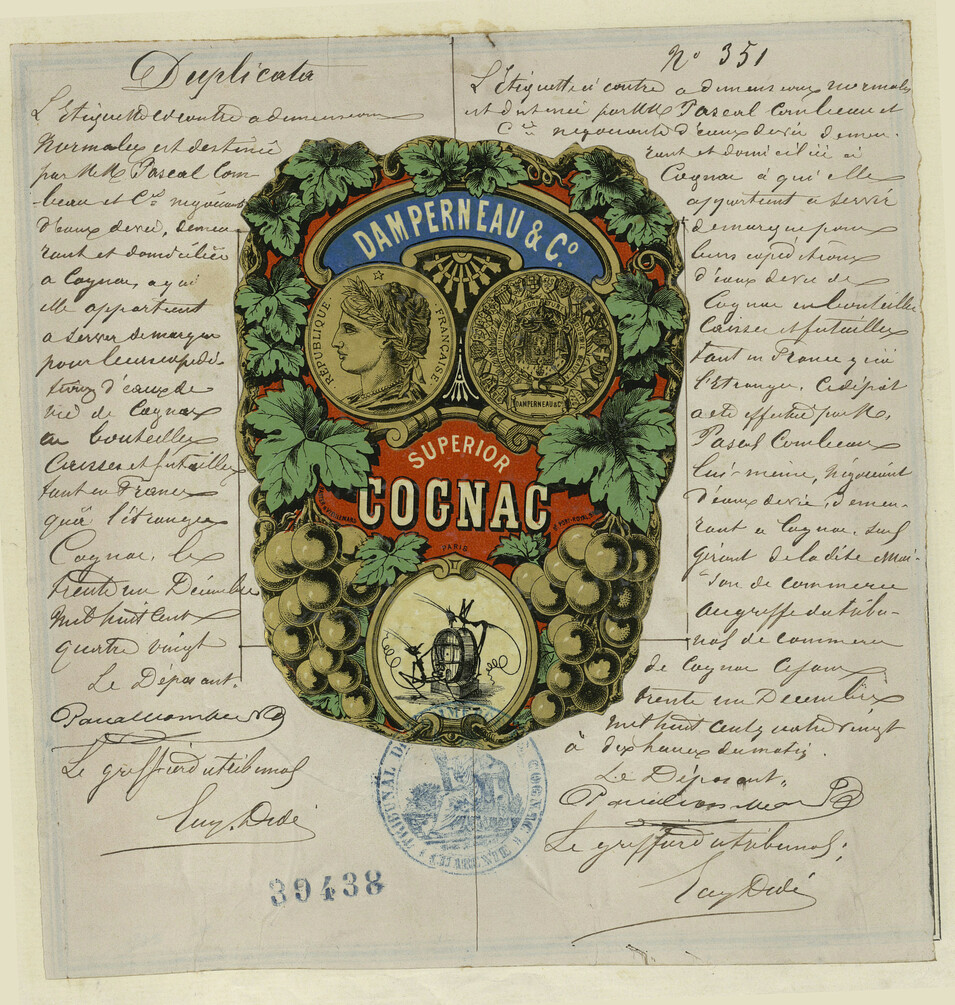 Duplicata
L'Etiquette ci contre a dimensions
Normales est destinée
par MM Pascal Com-
beau et Cie négociants
d'eaux de vie, demeu-
rant et domiciliés
a Cognac, a qui
elle appartient
a servir de marque
pour leurs expédi-
tions d'eaux de
vie de Cognac
en bouteilles
Caisses et futailles
tant en France
qu'à l'étranger
Cognac, le
trente un Décembre
mil huit cent
quatre vingt
Le Déposant.
Le greffier du tribunal
Eug. Didé
No 351
L'Etiquette ci contre a dimensions normales
est destinée par MM Pascal Combeau et
Cie négociants d'eaux de vie demeu-
rant et domiciliés à
Cognac à qui elle
appartient a servir
de marque pour
leurs expéditions
d'eaux de vie de
Cognac en bouteilles
Caisses et futailles
tant en France qu'à
l'Etranger. Ce dépôt
a été effectué par M.
Pascal Combeau
lui meme, négociant
d'eaux de vie, demeu-
rant a Cognac, seul
gérant de la dite Mai-
son de commerce
au greffe du tribu-
nal de commerce
de Cognac ce jour
trente un Décembre
mil huit cent quatre vingt
à dix heures du matin.
Le Déposant.
Le greffier du tribunal,
Eug Didé
DAMPERNEAU & Co
REPUBLIQUE FRANÇAISE
DAMPERNEAU & Co
SUPERIOR
COGNAC
PARIS
TRIBUNAL DE COGNAC
CHARENTE
39438